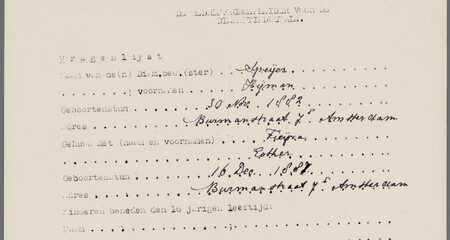 DE BEDRIJFSGEMEENSCHAP VOOR DE
V r a g e n l i j s t
Naam van de(n) Diam.bew.(ster) Speijer
; voornamen Hijman
Geboortedatum 30 Nov. 1882
adres Burmanstraat 7 s Amsterdam
Gehuwd met (naam en voornamen)
Esther
Geboortedatum 16 Dec. 1887
adres Burmanstraat 7 s Amsterdam
Kinderen beneden den 16 jarigen leeftijd:
Naam